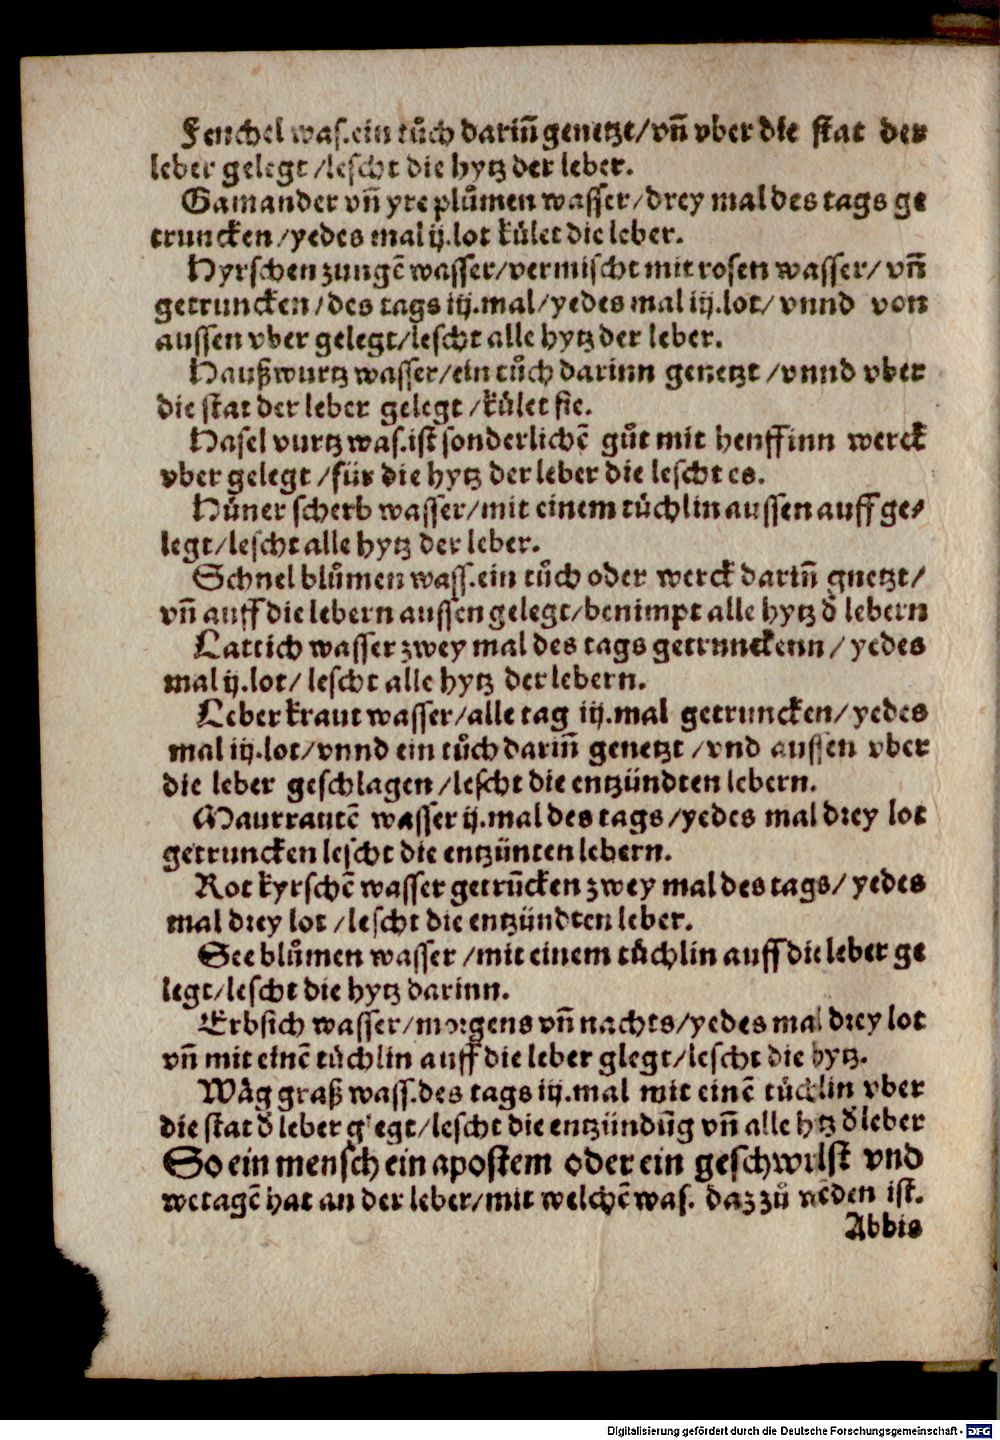 Fenchel was.ein tuͦch dariñ genetzt/vñ vber die stat der
leber gelegt/lescht die hytz der leber.
Gamander vñ yre pluͦmen wasser/drey mal des tags ge
truncken/yedes mal ij.lot kuͤlet die leber.
Hyrschen zungẽ wasser/vermischt mit rosen wasser/ vñ
getruncken/des tags iij.mal/yedes mal iij.lot/ vnnd von
aussen vber gelegt/lescht alle hytz der leber.
Haußwurtz wasser/ein tuͦch darinn genetzt /vnnd vber
die stat der leber gelegt /kuͤlet sie.
Hasel vurtz was.ist sonderlichẽ guͦt mit henffinn werck
vber gelegt /für die hytz der leber die lescht es.
Huͤner scherb wasser/mit einem tuͤchlin aussen auff ge-
legt/lescht alle hytz der leber.
Schnel bluͦmen wass.ein tuͦch oder werck dariñ gnetzt/
vñ auff die lebern aussen gelegt/benimpt alle hytz d̕ lebern
Lattich wasser zwey mal des tags getrunckenn/ yedes
mal ij.lot/ lescht alle hytz der lebern.
Leber kraut wasser/alle tag iij.mal getruncken/ yedes
mal iij.lot/vnnd ein tuͦch dariñ genetzt /vnd aussen vber
die leber geschlagen /lescht die entzündten lebern.
Maurrautẽ wasser ij.mal des tags/yedes mal drey lot
getruncken lescht die entzünten lebern.
Rot kyrschẽ wasser getrũcken zwey mal des tags/ yedes
mal drey lot /lescht die entzündten leber.
See bluͦmen wasser /mit einem tuͤchlin auff die leber ge
legt/lescht die hytz darinn.
Erbsich wasser/morgens vñ nachts/yedes mal drey lot
vñ mit einẽ tuͤchlin auff die leber glegt/lescht die hytz.
Waͤg graß wass.des tags iij.mal mit einẽ tuͤchlin vber
die stat d̕ leber glegt/lescht die entzündũg vñ alle htz d̕ leber
So ein mensch ein apostem oder ein geschwulst vnd
wetagẽ hat an der leber/mit welchẽ was. daz zuͦ wẽden ist.
Abbis
Digitalisierung gefördert durch die Deutsche Forschungsgemeinschaft - DFG